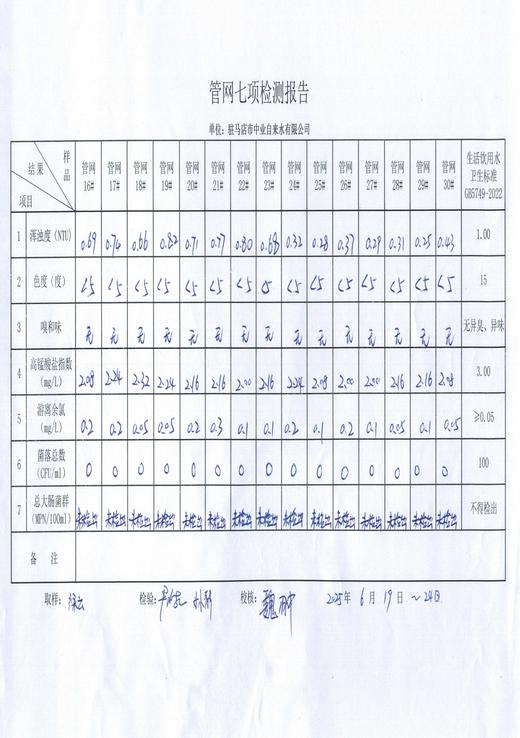 管网七项检测报告
单位：驻马店市中业自来水有限公司
样品 结果 项目 管网16# 管网17# 管网18# 管网19# 管网20# 管网21# 管网22# 管网23# 管网24# 管网25# 管网26# 管网27# 管网28# 管网29# 管网30# 生活饮用水卫生标准GB5749-2022
1 浑浊度（NTU） 0.69 0.74 0.66 0.82 0.71 0.77 0.80 0.68 0.32 0.28 0.37 0.29 0.31 0.25 0.43 1.00
2 色度（度） <5 <5 <5 <5 <5 <5 <5 <5 <5 <5 <5 <5 <5 <5 <5 15
3 嗅和味 无 无 无 无 无 无 无 无 无 无 无 无 无 无 无 无异臭、异味
4 高锰酸盐指数（mg/L） 2.08 2.24 2.32 2.24 2.16 2.16 2.00 2.16 2.24 2.08 2.00 2.00 2.16 2.16 2.08 3.00
5 游离余氯（mg/L） 0.2 0.2 0.05 0.05 0.2 0.3 0.1 0.1 0.2 0.1 0.2 0.1 0.05 0.1 0.05 ≥0.05
6 菌落总数（CFU/ml） 0 0 0 0 0 0 0 0 0 0 0 0 0 0 0 100
7 总大肠菌群（MPN/100ml） 未检出 未检出 未检出 未检出 未检出 未检出 未检出 未检出 未检出 未检出 未检出 未检出 未检出 未检出 未检出 不得检出
备 注
取样： 检验： 校核： 2025年 6月 19日 ～24日